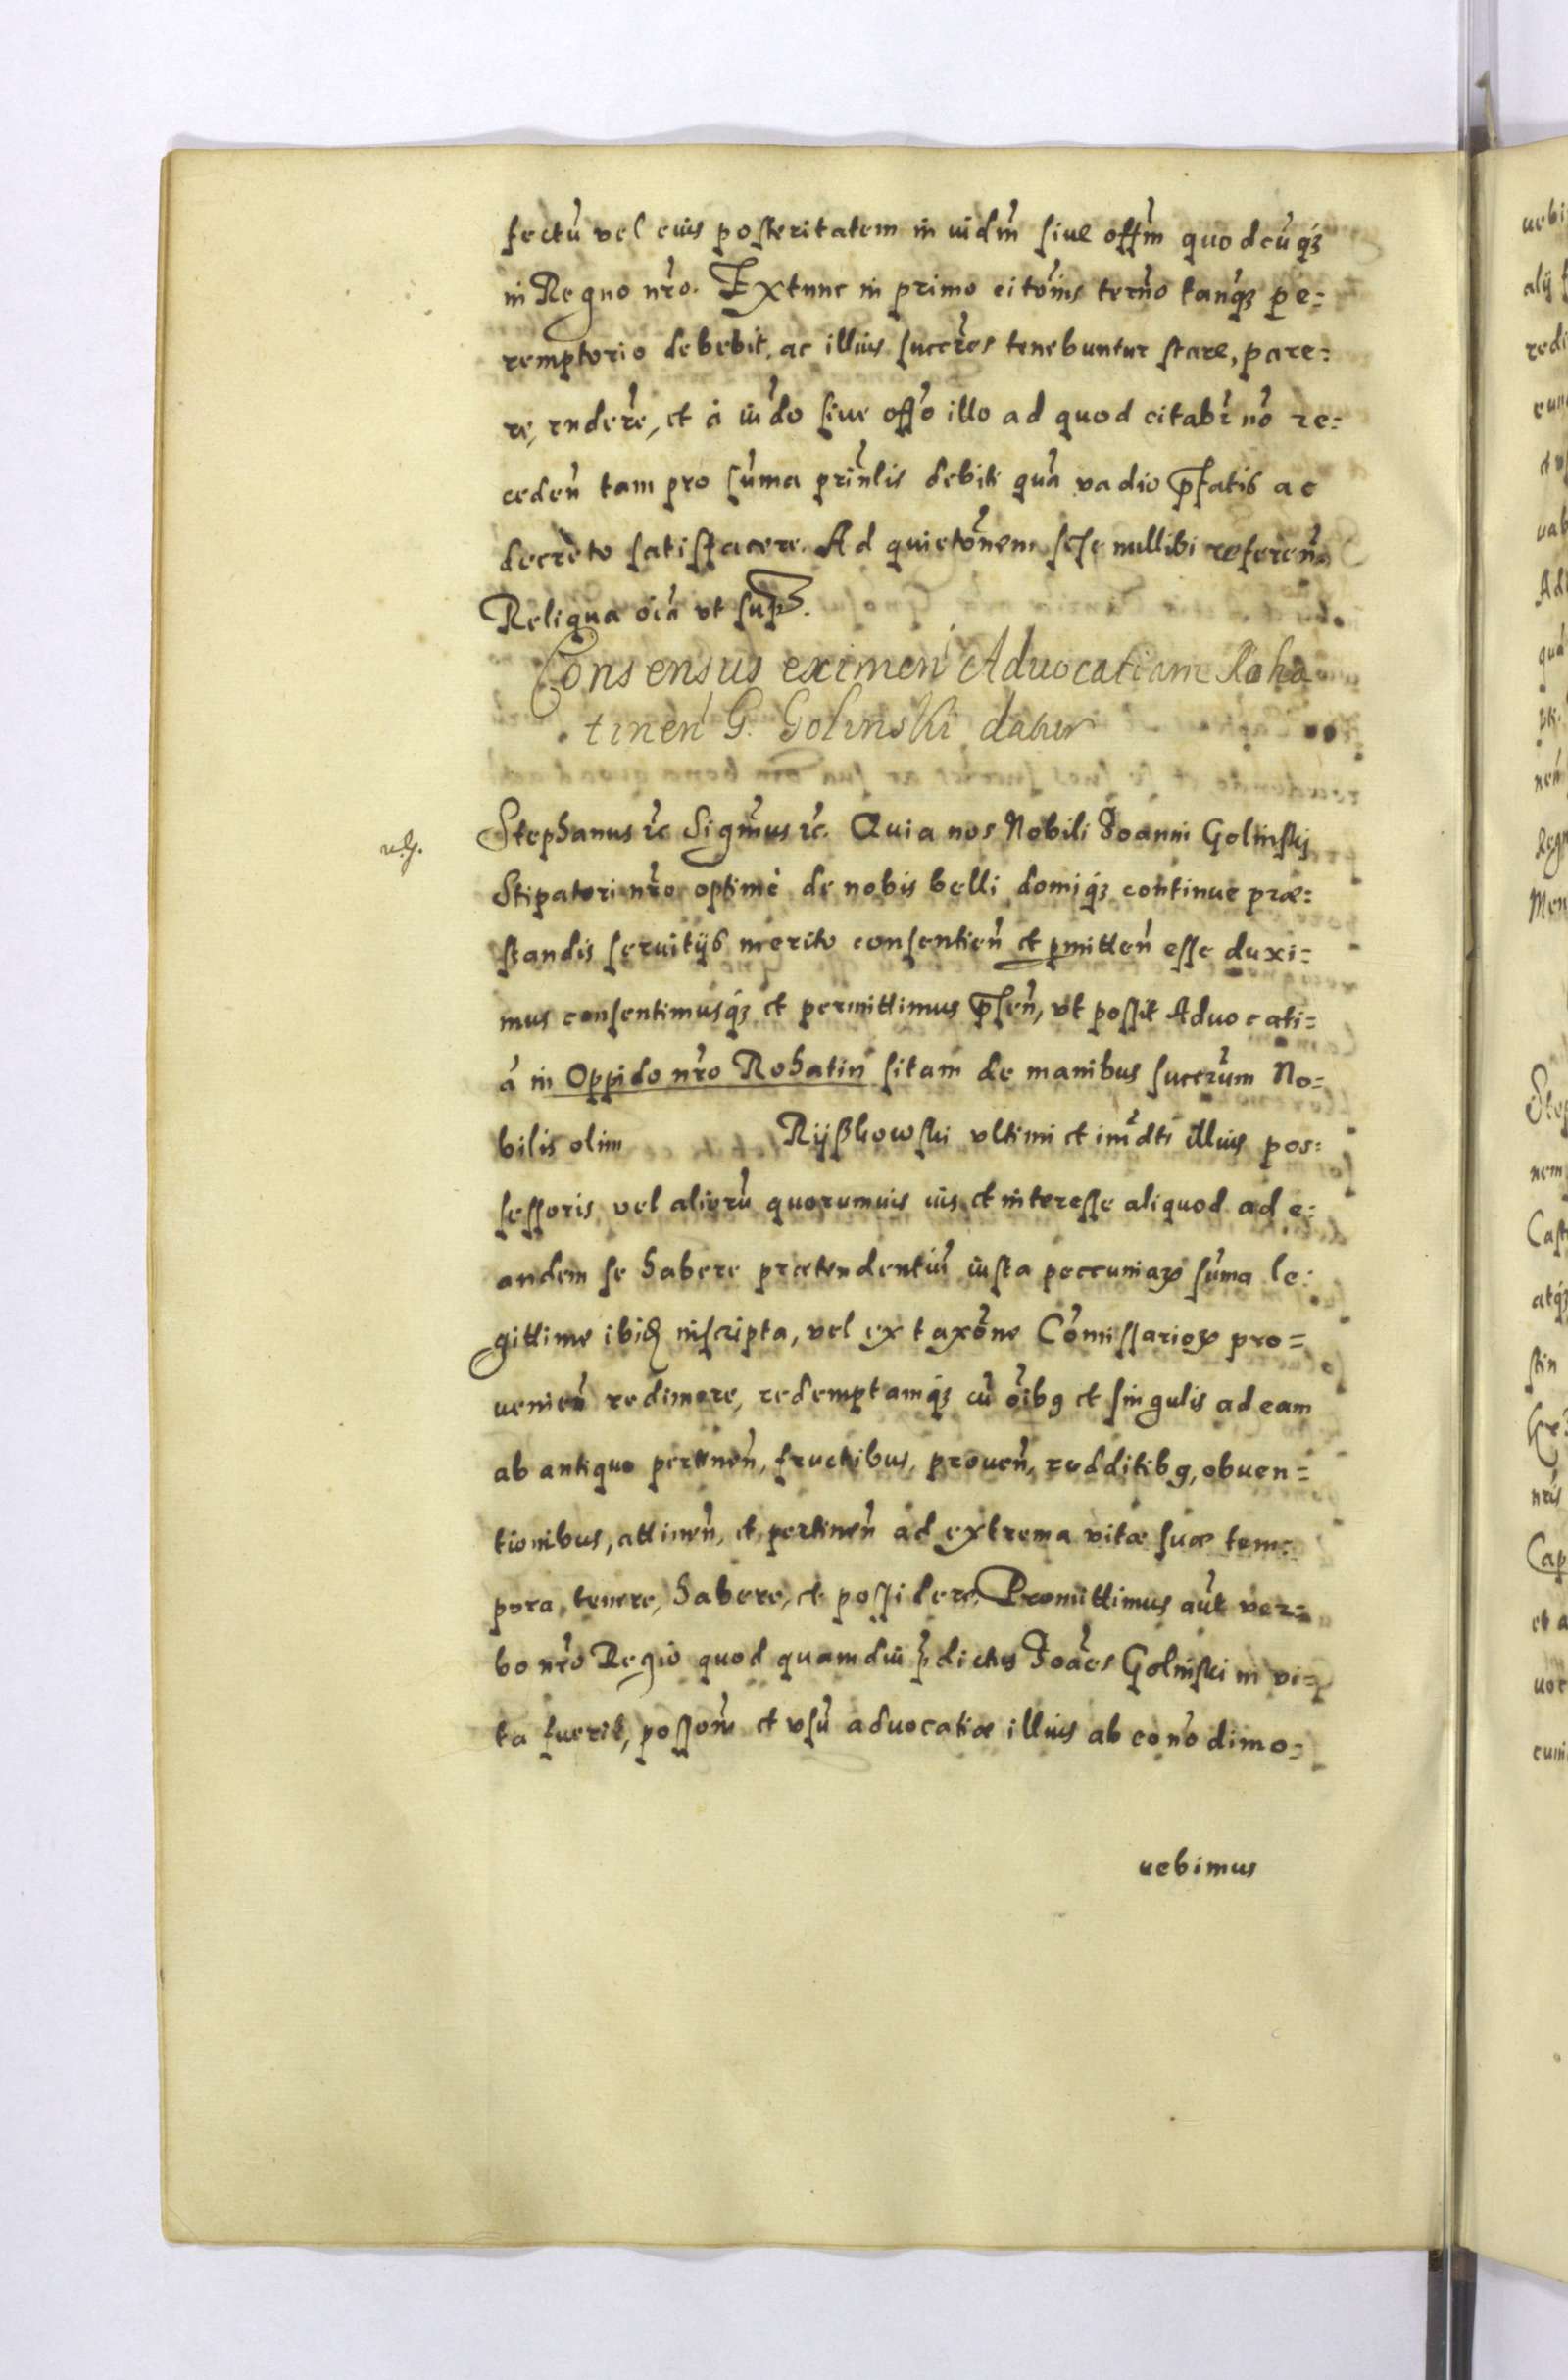 fectũ vel eius posteritatem in iudm̃ siue offm̃ quodcũq₃
in Regno nr̃o. Extunc in primo citõis term̃o tanq̃₃ pe=
remptorio debebit, ac illius succr̃es tenebuntur stare, pare=
re, rñdere, et à iudõ siue offõ illo ad quod citabr̃ nõ re=
cedeñ tam pro sũma prinl̃is debiti quã vadio p̃fatis ac
decreto satisfacere. Ad quietõnem sese nullibi refereñ.
Reliqua oĩa vt sup̃.
Consensus eximeñ Aduocatiam Roha
tineñ G. Golinski datur
Stephanus etc̃ Sigm̃us etc̃. Quia nos Nobili Joanni Golinskj
Stipatori nr̃o optimè de nobis belli domiq₃ continue præ=
standis seruitijs merito consentieñ et p̱mitteñ esse duxi=
mus consentimusq₃ et permittimus p̃señ, vt possit Aduocati=
ã in Oppido nr̃o Rohatin sitam de manibus succr̃um No=
bilis olim Rijßkowski vltimi et im̃dti illius pos=
sessoris, vel aliorũ quorumuis ius et interesse aliquod ad e=
andem se habere prætendentiũ iusta peccuniaꝝ sũma le=
gittime ibid̃ inscripta, vel ex taxõne Cõmissarioꝝ pro=
uenieñ redimere, redemptamq₃ cũ oĩbꝯ et singulis ad eam
ab antiquo pertineñ, fructibus, proueñ, redditibꝯ, obuen=
tionibus, attineñ, et pertineñ ad extrema vitæ suæ tem=
pora, tenere, habere, et possidere. Promittimus aũt ver=
bo nr̃o Regio quod quamdiu p̃dictus Joães Golinski in vi=
ta fuerit, possom̃ et vsũ aduocatiæ illius ab eo nõ dimo=
uebimus